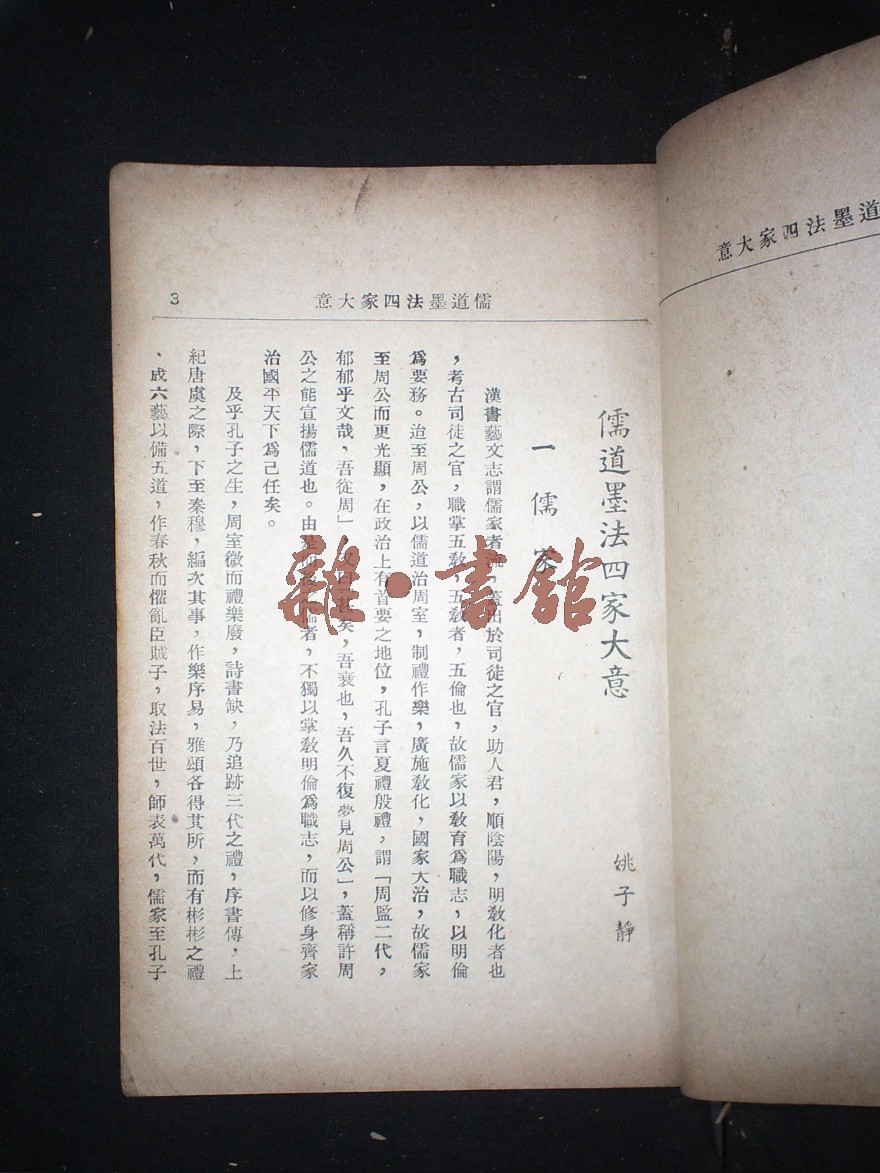 儒道墨法四家大意
3
儒道墨法四家大意
姚子靜
一 儒家
漢書藝文志謂儒家者流，蓋出於司徒之官，助人君，順陰陽，明敎化者也
，考古司徒之官，職掌五敎，五敎者，五倫也，故儒家以敎育爲職志，以明倫
爲要務。迨至周公，以儒道治周室，制禮作樂，廣施敎化，國家大治，故儒家
至周公而更光顯，在政治上有首要之地位，孔子言夏禮殷禮，謂「周監二代，
郁郁乎文哉，吾從周」又曰「甚矣，吾衰也，吾久不復夢見周公」，蓋稱許周
公之能宣揚儒道也。由是儒者，不獨以掌敎明倫爲職志，而以修身齊家
治國平天下爲己任矣。
及乎孔子之生，周室微而禮樂廢，詩書缺，乃追跡三代之禮，序書傳，上
紀唐虞之際，下至秦穆，編次其事，作樂序易，雅頌各得其所，而有彬彬之禮
，成六藝以備五道，作春秋而懼亂臣賊子，取法百世，師表萬代，儒家至孔子
道墨法四家大意
雜·書館